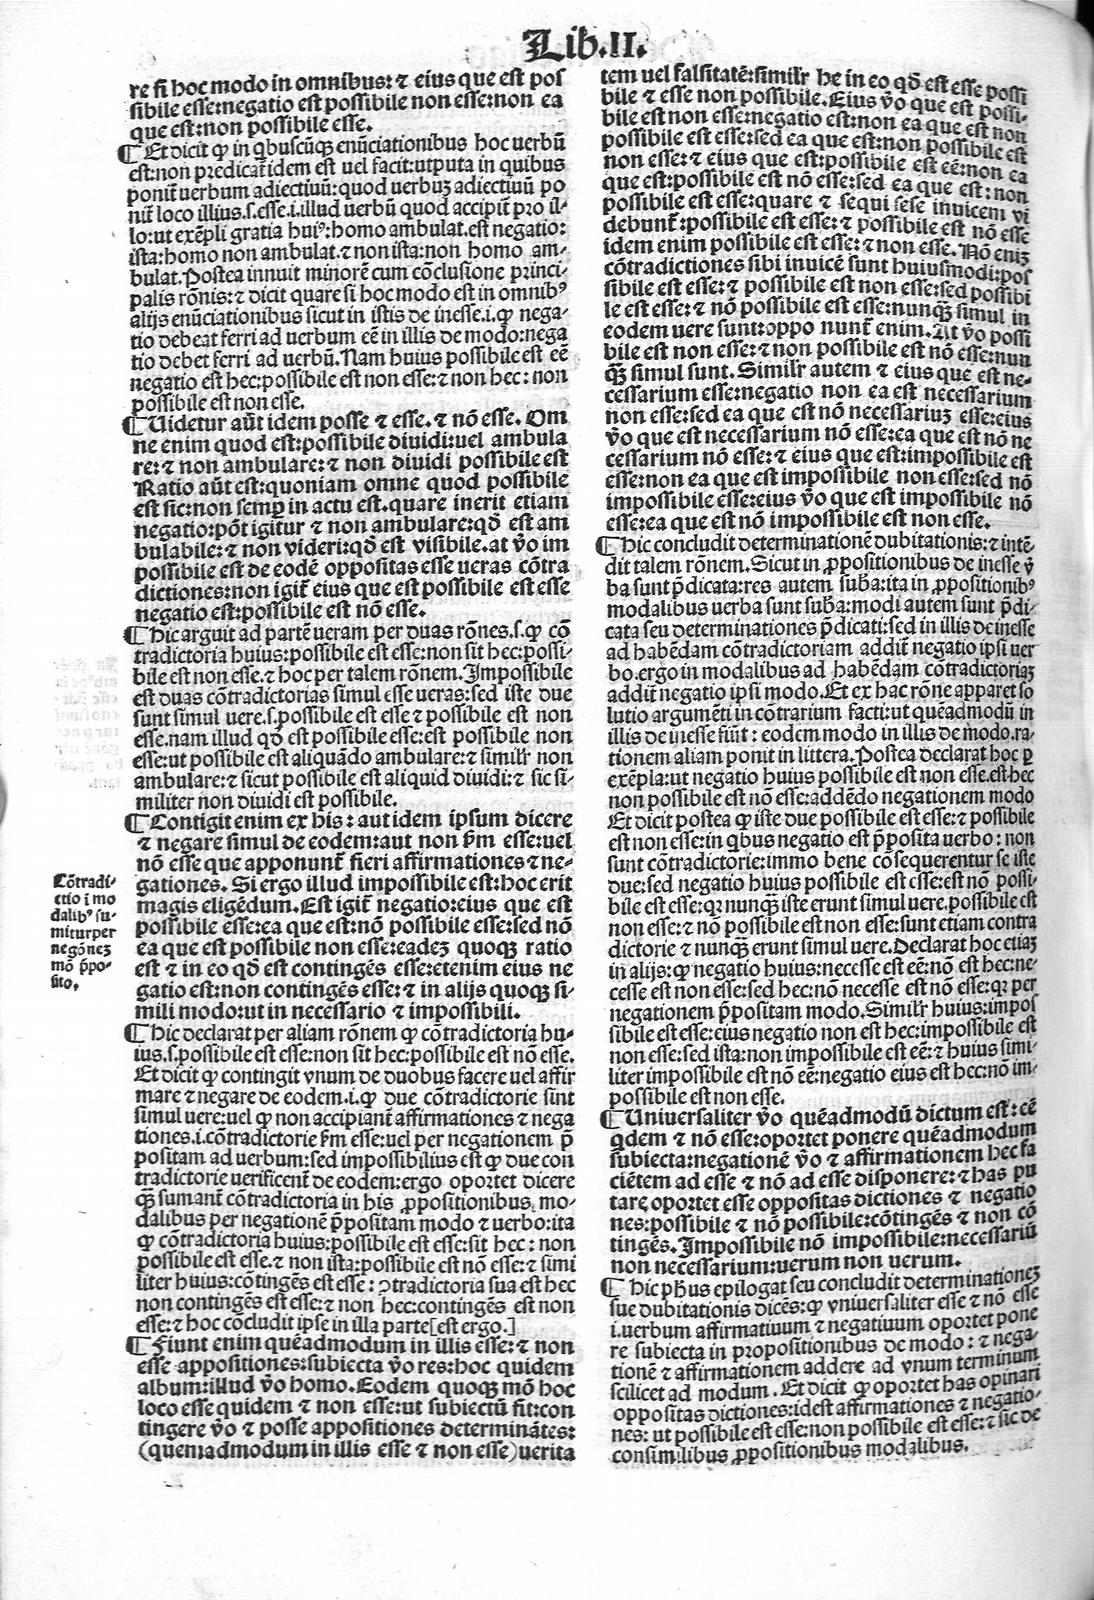 Lib.II.
re si hoc modo in omnibus: ⁊ eius que est pos
sibile esse:negatio est possibile non esse:non ea
que est:non possibile esse.
¶ Et dicit ꝙ in qbuscūqꝫ enūciationibus hoc uerbū
est:non predicat̄ idem est uel facit:utputa in quibus
ponit̄ uerbum adiectiuū:quod uerbuꝫ adiectiuū po
nit̄ loco illius.s.esse.i.illud uerbū quod accipit̄ pro il-
lo:ut exēpli gratia huiꝰ:homo ambulat.est negatio:
ista:homo non ambulat.⁊ non ista:non homo am-
bulat.Postea innuit minorē cum cōclusione princi-
palis rōnis:⁊ dicit quare si hoc modo est in omnibꝰ
alijs enūciationibus sicut in istis de inesse.i.ꝙ nega-
tio debeat ferri ad uerbum eē in illis de modo:nega
tio debet ferri ad uerbū.Nam huius possibile est eē
negatio est hec:possibile est non esse:⁊ non hec:non
possibile est non esse.
¶ Uidetur aūt idem posse ⁊ esse.⁊ nō esse. Om
ne enim quod est:possibile diuidi:uel ambula
re:⁊ non ambulare:⁊ non diuidi possibile est
Ratio aūt est:quoniam omne quod possibile
est sic:non semꝑ in actu est.quare inerit etiam
negatio:pōt igitur ⁊ non ambulare:qđ est am
bulabile:⁊ non videri:qđ est visibile.at v̄o im
possibile est de eodē oppositas esse ueras cōtra
dictiones:non igit̄ eius que est possibile est esse
negatio est:possibile est nō esse.
¶ Hic arguit ad partē ueram per duas rōnes.s.ꝙ cō
tradictoria huius:possibile est esse:non sit hec:possi-
bile est non esse.⁊ hoc per talem rōnem.Impossibile
est duas cōtradictorias simul esse ueras:sed iste due
sunt simul uere.s.possibile est esse ⁊ possibile est non
esse.nam illud qđ est possibile esse:est possibile non
esse:ut possibile est aliquādo ambulare:⁊ similr̄ non
ambulare:⁊ sicut possibile est aliquid diuidi:⁊ sic si-
militer non diuidi est possibile.
¶ Contigit enim ex his:aut idem ipsum dicere
⁊ negare simul de eodem:aut non ẜm esse:uel
nō esse que apponunt̄ fieri affirmationes ⁊ ne-
gationes. Si ergo illud impossibile est:hoc erit
magis eligēdum.Est igit̄ negatio:eius que est
possibile esse:ea que est:nō possibile esse:sed nō
ea que est possibile non esse:eadeꝫ quoqꝫ ratio
est ⁊ in eo qđ est contingēs esse:etenim eius ne
gatio est:non contingēs esse:⁊ in alijs quoqꝫ si-
mili modo:ut in necessario ⁊ impossibili.
¶ Hic declarat per aliam rōnem ꝙ cōtradictoria hu-
ius.s.possibile est esse:non sit hec:possibile est nō esse.
Et dicit ꝙ contingit vnum de duobus facere uel affir
mare ⁊ negare de eodem.i.ꝙ due cōtradictorie sint
simul uere:uel ꝙ non accipiant̄ affirmationes ⁊ nega
tiones.i.cōtradictorie ẜm esse:uel per negationem p̄
positam ad uerbum:sed impossibilius est ꝙ due con
tradictorie uerificent̄ de eodem:ergo oportet dicere
ꝙ sumant̄ cōtradictoria in his ꝓpositionibus mo-
dalibus per negationē p̄positam modo ⁊ uerbo:ita
ꝙ cōtradictoria huius:possibile est esse:sit hec:non
possibile est esse.⁊ non ista:possibile est nō esse:⁊ simi
liter huius:cōtingēs est esse:ↄtradictoria sua est hec
non contingēs est esse:⁊ non hec:contingēs est non
esse:⁊ hoc cōcludit ipse in illa parte[est ergo.]
¶ Fiunt enim quēadmodum in illis esse:⁊ non
esse appositiones:subiecta v̄o res:hoc quidem
album:illud v̄o homo.Eodem quoqꝫ mō hoc
loco esse quidem ⁊ non esse:ut subiectū fit:con
tingere v̄o ⁊ posse appositiones determinātes:
(quemadmodum in illis esse ⁊ non esse)uerita
Cōtradi-
ctio ī mo
dalibꝰ su-
mitur per
negōneꝫ
mō p̄po-
sito.
tem uel falsitatē:similr̄ he in eo qđ est esse possi
bile ⁊ esse non possibile.Eius v̄o que est possi-
bile est non esse:negatio est:non ea que est non
possibile est esse:sed ea que est:non possibile est
non esse:⁊ eius que est:possibile est eē:non ea
que est:possibile est nō esse:sed ea que est:non
possibile est esse:quare ⁊ sequi sese inuicem vi
debunt̄:possibile est esse:⁊ possibile est nō esse
idem enim possibile est esse:⁊ non esse. Nō eniꝫ
cōtradictiones sibi inuicē sunt huiusmodi:pos
sibile est esse:⁊ possibile est non esse:sed possibi
le est esse:⁊ nō possibile est esse:nunqꝫ simul in
eodem uere sunt:opponunt̄ enim.At v̄o possi
bile est non esse:⁊ non possibile est nō esse:nun
qꝫ simul sunt.Similr̄ autem ⁊ eius que est ne-
cessarium esse:negatio non ea est necessarium
non esse:sed ea que est nō necessariuꝫ esse:eius
v̄o que est necessarium nō esse:ea que est nō ne
cessarium nō esse:⁊ eius que est:impossibile est
esse:non ea que est impossibile non esse:sed nō
impossibile esse:eius v̄o que est impossibile nō
esse:ea que est nō impossibile est non esse.
¶ Hic concludit determinationē dubitationis:⁊ intē-
dit talem rōnem.Sicut in ꝓpositionibus de inesse v̄
ba sunt p̄dicata:res autem subā:ita in ꝓpositionibꝰ
modalibus uerba sunt subā:modi autem sunt p̄di-
cata seu determinationes p̄dicati:sed in illis de inesse
ad habēdam cōtradictoriam addit̄ negatio ipsi uer
bo.ergo in modalibus ad habēdam cōtradictoriaꝫ
addit̄ negatio ipsi modo.Et ex hac rōne apparet so
lutio argumēti in cōtrarium facti:ut quēadmodū in
illis de inesse fiūt:eodem modo in illis de modo.ra-
tionem aliam ponit in littera.Postea declarat hoc ꝑ
exēpla:ut negatio huius possibile est non esse.est hec
non possibile est nō esse:addēdo negationem modo
Et dicit postea ꝙ iste due possibile est esse:⁊ possibile
est non esse:in qbus negatio est p̄posita uerbo:non
sunt cōtradictorie:immo bene cōsequerentur se iste
due:sed negatio huius possibile est esse:est nō possi-
bile est esse:qꝛ nunqꝫ iste erunt simul uere.possibile est
non esse:⁊ nō possibile est non esse:sunt etiam contra
dictorie ⁊ nunqꝫ erunt simul uere.Declarat hoc etiaꝫ
in alijs:ꝙ negatio huius:necesse est eē:nō est hec:ne-
cesse est non esse:sed hec:nō necesse est nō esse:qꝛ per
negationem p̄positam modo.Similr̄ huius:impos
sibile est esse:eius negatio non est hec:impossibile est
non esse:sed ista:non impossibile est eē:⁊ huius simi-
liter impossibile est nō eē:negatio eius est hec:nō im-
possibile est non esse.
¶ Uniuersaliter v̄o quēadmodū dictum est:eē
qdem ⁊ nō esse:oportet ponere quēadmodum
subiecta:negationē v̄o ⁊ affirmationem hec fa
ciētem ad esse ⁊ nō ad esse disponere:⁊ has pu
tare oportet esse oppositas dictiones ⁊ negatio
nes:possibile ⁊ nō possibile:cōtingēs ⁊ non cō
tingēs.Impossibile nō impossibile:necessariū
non necessarium:uerum non uerum.
¶ Hic pħus epilogat seu concludit determinationeꝫ
sue dubitationis dicēs:ꝙ vniuersaliter esse ⁊ nō esse
i.uerbum affirmatiuum ⁊ negatiuum oportet pone
re subiecta in propositionibus de modo:⁊ nega-
tionē ⁊ affirmationem addere ad vnum terminum
scilicet ad modum. Et dicit ꝙ oportet has opinari
oppositas dictiones:idest affirmationes ⁊ negatio-
nes: ut possibile est esse:non possibile est esse:⁊ sic de
consimilibus ꝓpositionibus modalibus.